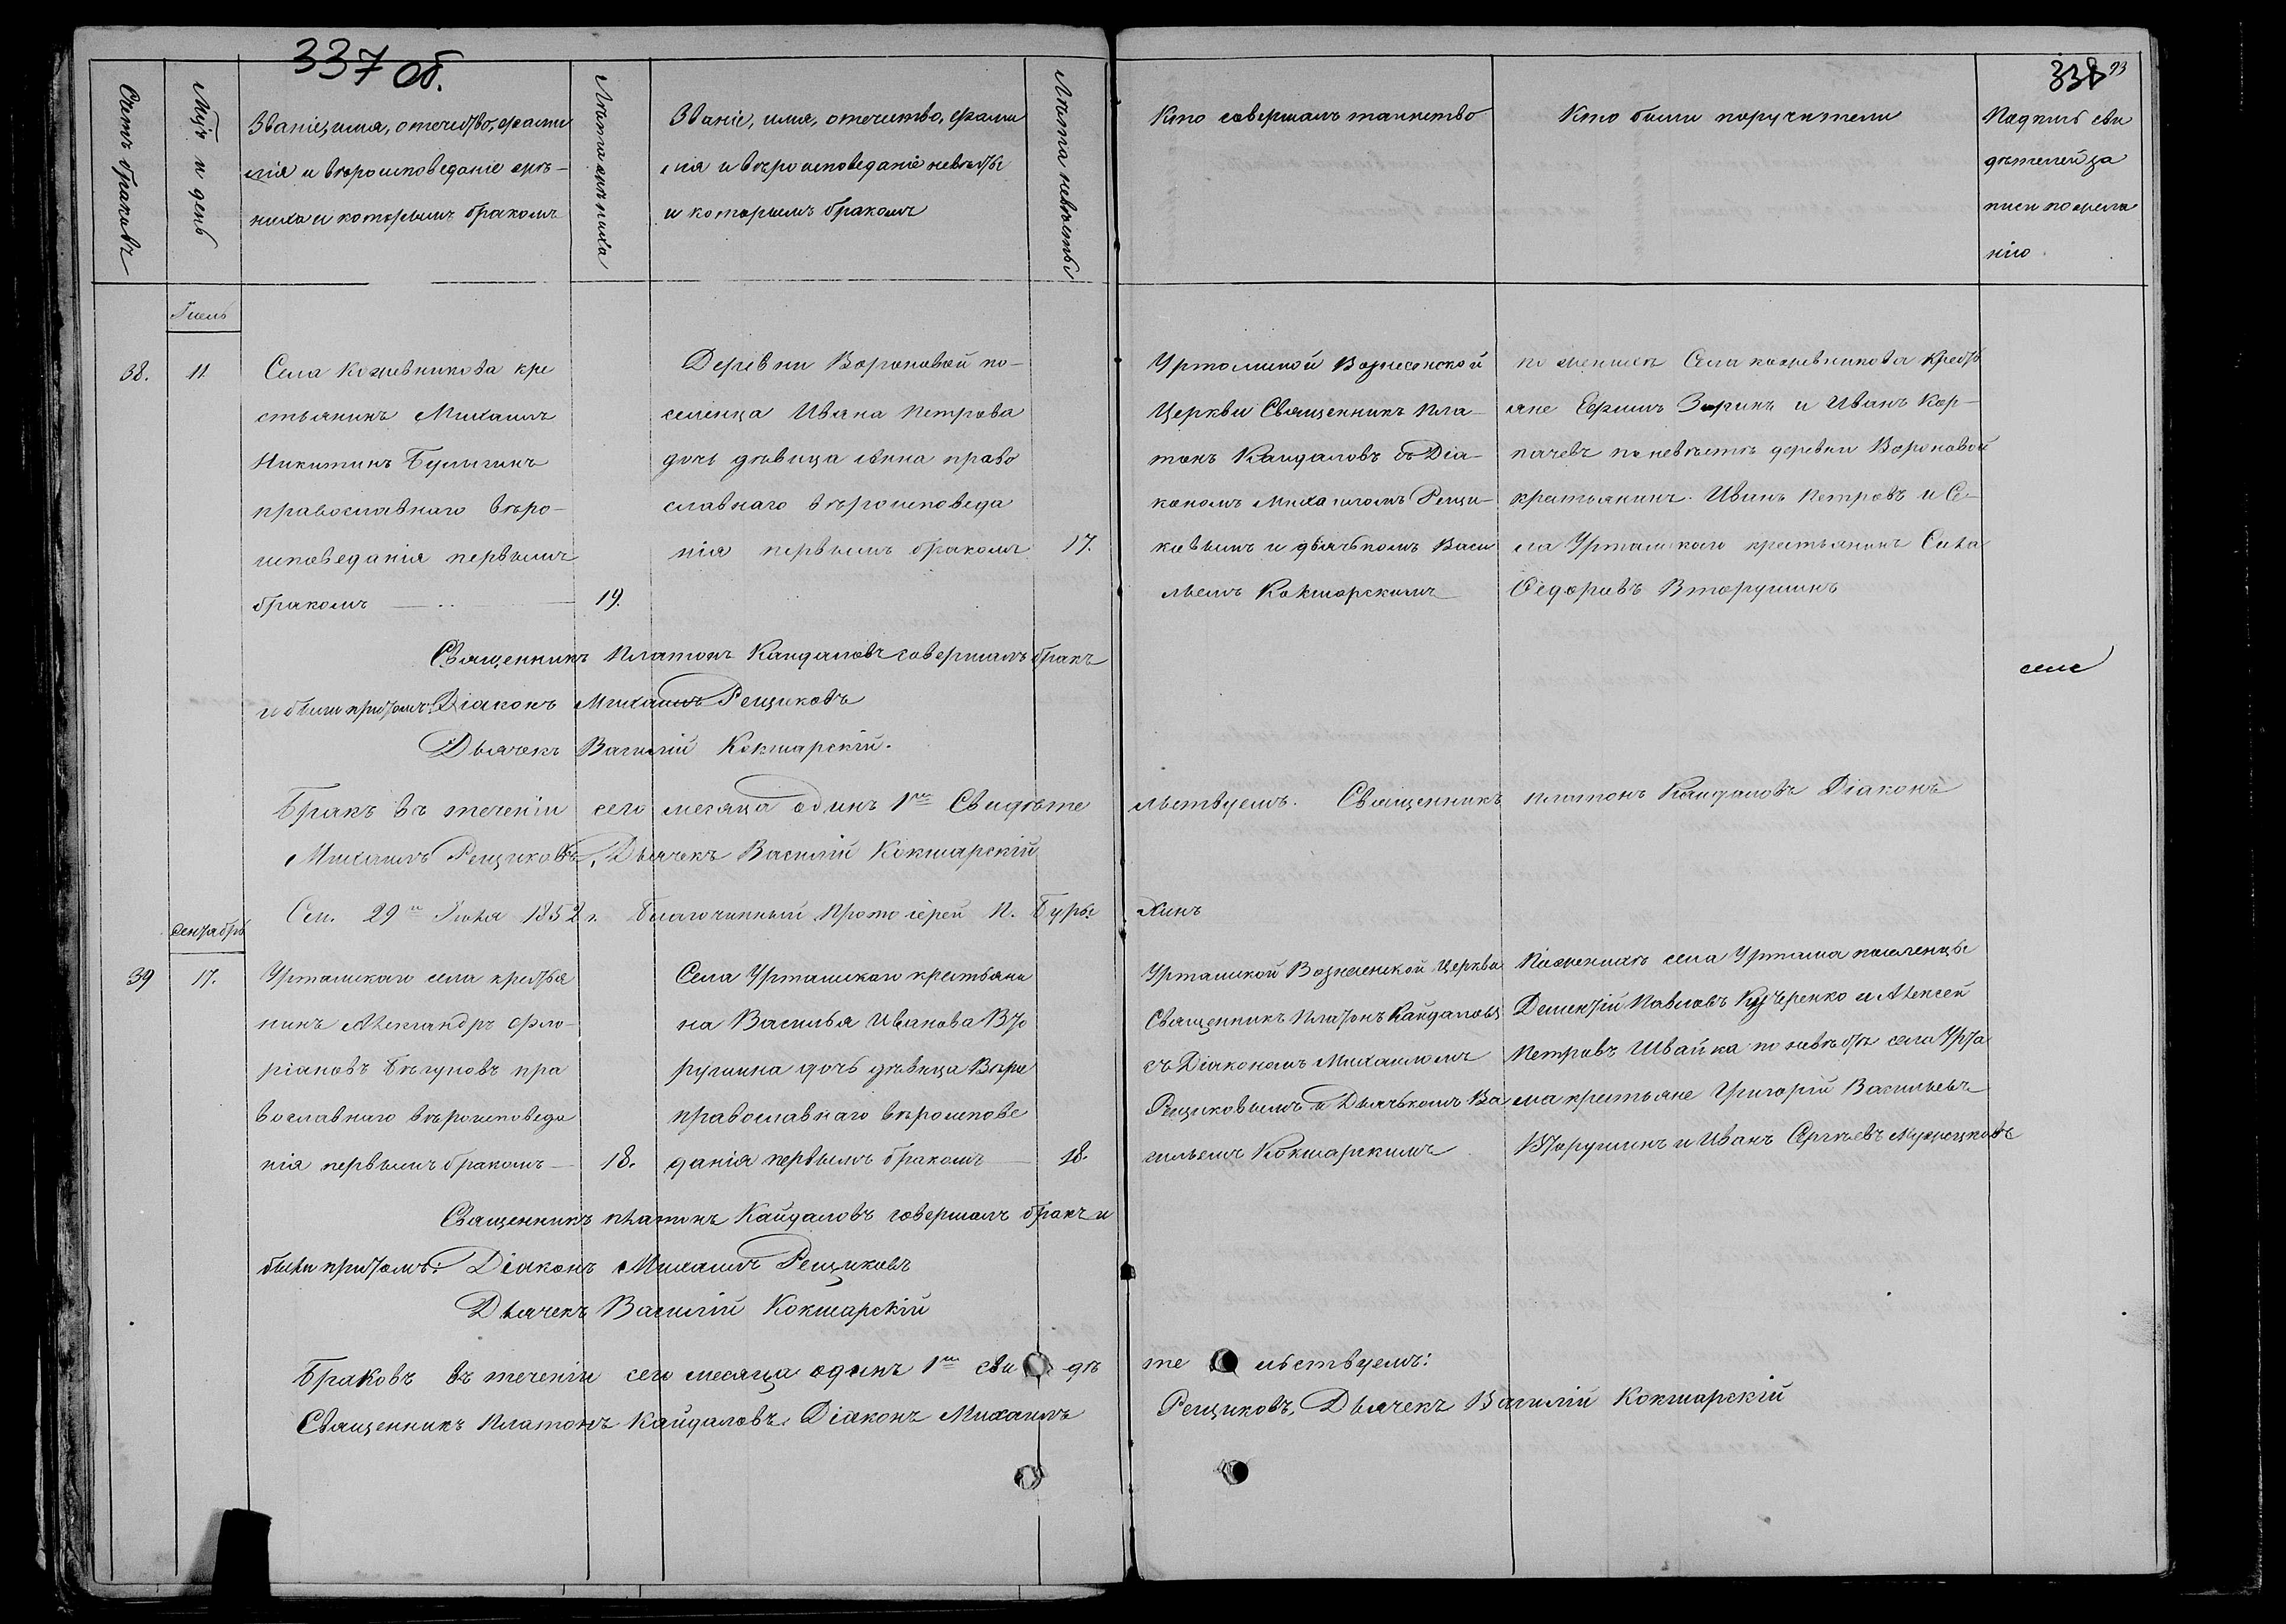 337 об.
338 93
Счетъ браковъ
Мцъ и день
Званіе, имя, отечество, фами
лія и вѣроисповеданіе же-
ниха и которымъ бракомъ
Лѣта жениха
Званіе, имя, отечество, фами
лія и вѣроисповеданіе невѣсты
и которымъ бракомъ
Лѣта невѣсты
Кто совершалъ таинство
Кто были поручители
Подпись сви
дѣтелей за
писи по жела
нію
38.
11
Села Кожевникова кре
стьянинъ Михаилъ
Никитинъ
православнаго вѣро-
исповеданія первымъ
бракомъ
19.
Деревни Вороновой по-
селенца Ивана Петрова
дочь дѣвица Анна право
славнаго вѣроисповеда
нія первымъ бракомъ
17.
Уртамской Вознесенской
Церкви Священникъ Пла-
тонъ Кайдаловъ съ Діа-
кономъ Михаиломъ Рещи-
ковымъ и дьячькомъ Васи
льемъ Кокшарскимъ
по женихѣ Села Кожевникова крест
яне Ефимъ Зоринъ и Иванъ Кор-
пачевъ по невѣстѣ деревни Вороновой
крестьянинъ Иванъ Петровъ и Се-
ла Уртамскаго крестьянинъ Сила
Федоровъ Вторушинъ
Священникъ Платонъ Кайдаловъ совершалъ бракъ
и были притомъ: Діаконъ Михаилъ Рещиковъ
Дьячекъ Василій Кокшарскій.
Бракъ въ теченіи сего месяца одинъ 1нъ Свидѣте
льствуемъ. Священникъ Платонъ Кайдаловъ Діаконъ
Михаилъ Рещиковъ, Дьячекъ Василій Кокшарскій
29 Іюля 1852 г. Благочинный Протоіерей П. Буры
хинъ
Сентябрь
39
17.
Уртамскаго села крестья
нинъ Александръ Фло-
ріановъ Бѣгуновъ пра
вославнаго вѣроисповеда
нія первымъ бракомъ
18.
Села Уртамскаго крестьяни
на Василья Иванова Вто
рушина дочь дѣвица Вѣра
православнаго вѣроисповѣ
данія первымъ бракомъ
18.
Уртамской Вознесенской Церкви
Священникъ Платонъ Кайдаловъ
съ Діакономъ Михаиломъ
Рещиковымъ и Дьячькомъ Ва
сильемъ Кокшарскимъ
По женихѣ села Уртама поселенцы
Дементій Павловъ Кучеренко и Алексей
Петровъ Швайка по невѣстѣ села Урта
ма крестьяне Григорій Васильевъ
Вторушинъ и Иванъ Сергѣевъ
Священникъ Платонъ Кайдаловъ совершалъ бракъ и
были притомъ: Діаконъ Михаилъ Рещиковъ
Дьячекъ Василій Кокшарскій
Браковъ въ теченіи сего месяца одинъ 1нъ сви дѣ
те льствуемъ:
Священникъ Платонъ Кайдаловъ, Діаконъ Михаилъ
Рещиковъ, Дьячекъ Василій Кокшарскій